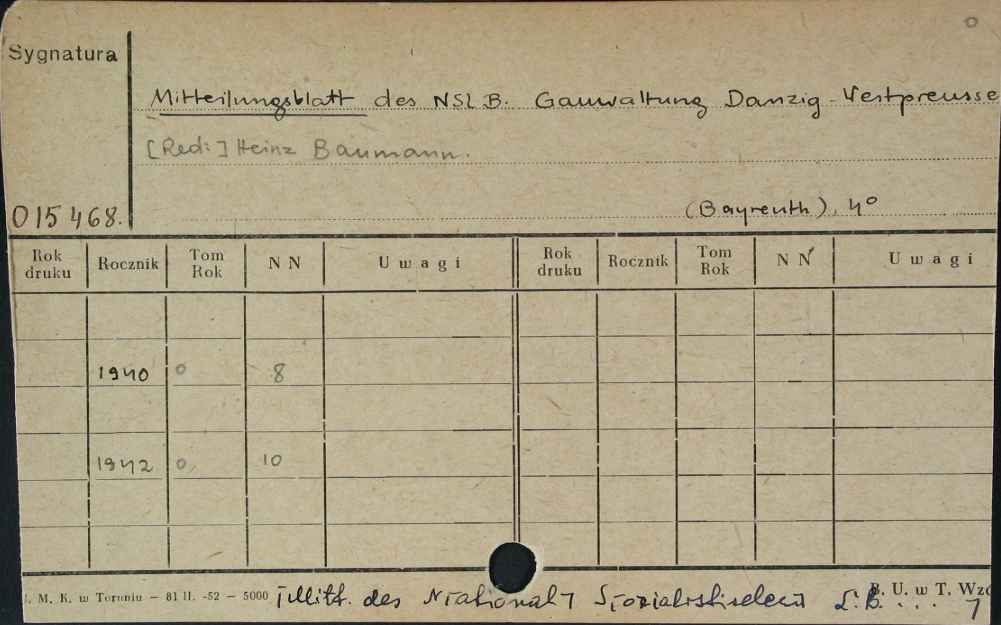 o
Sygnatura
Mitteilungsblatt des NSLB. Gauwaltung Danzig-Westpreusse
[Red:] Heinz Baumann.
015468.
(Bayreuth). 4°
Rok druku Rocznik Tom Rok NN Uwagi Rok druku Rocznik Tom Rok NN Uwagi
1940 o 8
1942 o 10
. M. K. w Toruniu – 81 II. -52 – 5000
B. U. w T. Wzó
Mitt. des National Sozialistischen L.B. . . .